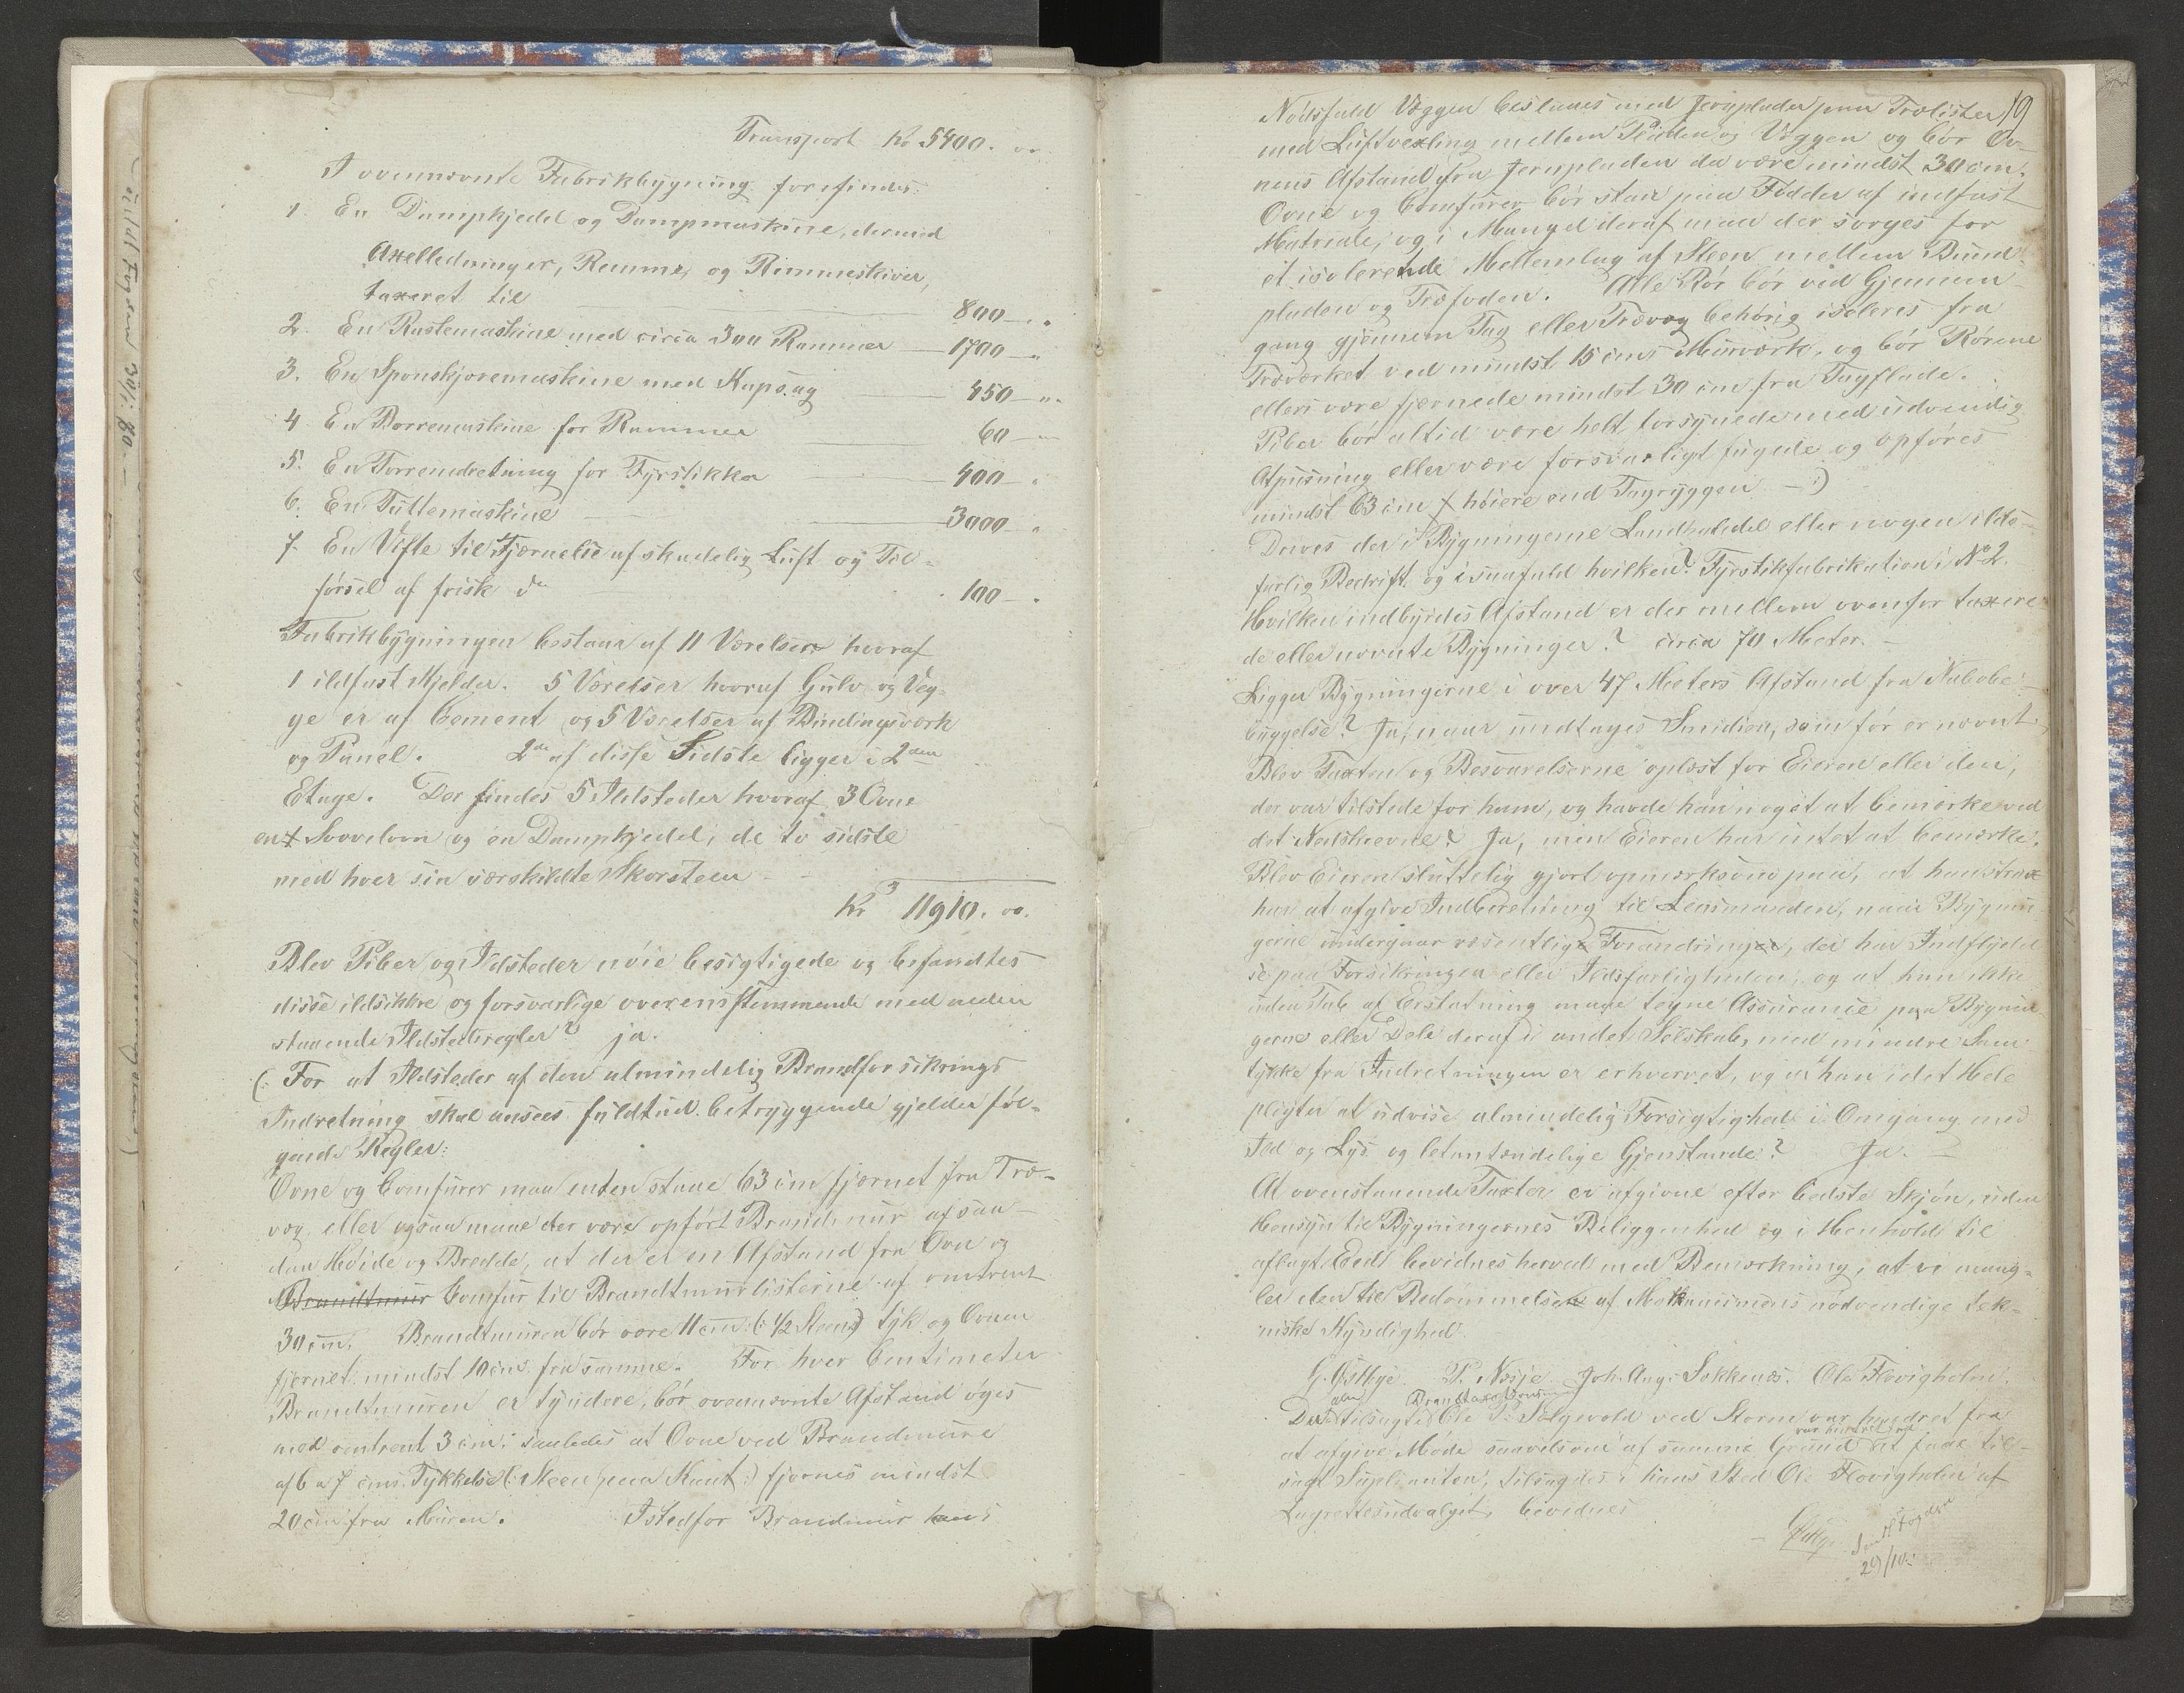 Transport Kr 5400. oo
I ovennævnte Fabrikbygning forefindes:
1. En Dampkjedel og Dampmaskine, dermed
Axelledninger, Remmer og Rimmeskiver,
taxeret til 800 — „
2. En Rastemaskine med circa 300 Rammer — 1700 — „
3. En Sponskjøremaskine med Kapsag 450 — „
4. En Borremaskine for Rammer 60 — „
5. En Torreindretning for Fyrstikker 400 — „
6. En Tuttemaskine 3000 — „
7. En Vifte til Fjærnelse af skadelig Luft og Til-
førsel af frisk do 100 — „
Fabrikbygningen bestaar af 11 Værelser hvoraf
1 ildfast Kjelder. 5 Værelser hvoraf Gulv og Væg-
ge er af Cement og 5 Værelser af Bindingsværk
og Panel. 2de af disse Sidste ligger i 2den
Etage. Der findes 5 Ildsteder hvoraf 3 Ovne
en Svovelovn og en Dampkjedel, de to sidste
med hver sin særskildte Skorsteen
Kr 11910. oo.
Blev Piber og Ildsteder nøie besigtigede og befandtes
disse ildsikkre og forsvarlige overensstemmende med neden
staaende Ildstedsregler? ja.
(: For at Ildsteder af den almindelig Brandforsikrings
Indretning skal ansees fuldtud betryggende gjelder føl-
gende Regler:
Ovne og Comfurer maa enten staae 63 cm fjernet fra Træ-
væg, eller ogsaa maae der være opført Brandmur af saa-
dan Høide og Bredde, at der er en Afstand fra Ovn og
Brandtmur Comfur til Brandtmurlisterne af omtrent
30 cm. Brandtmuren bør være 11 cm (: ½ Steens) tyk og Ovnen
fjernet mindst 10 cm fra samme. For hver Centimeter
Brandtmuren er tyndere, bør ovennævnte Afstand øges
med omtrent 3 cm: saaledes at Ovne ved Brandmure
af 6 a 7 cms Tykkelse (: Steen paa Kant :) fjernes mindst
20 cm fra Muren. Istedfor Brandmur kan i
19
Nødsfald Væggen beslaaes med Jernplader paa Trælister
med Luftvexling mellem Pladen og Væggen og bør Ov-
nens Afstand fra Jernpladen da være mindst 30 cm.
Ovne og Comfurer bør staa paa Fødder af ildfast
Matriale, og i Mangel deraf maa der sørges for
et isolerende Mellemlag af Steen mellem Bund-
pladen og Træfoden. Alle Rør bør ved Gjennem-
gang gjennem Tag eller Trævæg behørig isoleres fra
Træværket ved mindst 15 cms Murværk, og bør Rørene
ellers være fjernede mindst 30 cm fra Tagflade.
Piber bør altid være helt forsynede med udvendig
Afpusning eller være forsvarligt fugede og opføres
mindst 63 cm høiere end Tagryggen — :)
Drives der i Bygningerne Landhandel eller nogen ilds-
farlig Bedrift og isaafald hvilken? Fyrstikfabrikation i No 2.
Hvilken indbyrdes Afstand er der mellem ovenfor taxere
de eller nævnte Bygninger? circa 70 Meter. —
Ligger Bygningerne i over 47 Meters Afstand fra Nabobe-
byggelse? Ja, naar undtages Smidien, som før er nævnt.
Blev Taxten og Besvarelserne oplæst for Eieren eller den,
der var tilstede for ham, og havde han noget at bemærke ved
det Nedskrevne? Ja, men Eieren har intet at bemærke.
Blev Eieren sluttelig gjort opmærksom paa, at han strax
har at afgive Indberetning til Lensmanden, naar Bygnin
gerne undergaar væsentlige Forandringer, der har Indflydel
se paa Forsikringen eller Ildsfarligheden, og at han ikke
uden Tab af Erstatning maae tegne Assurance paa Bygnin
gerne eller Dele deraf i andet Selskab, med mindre Sam
tykke fra Indretningen er erhvervet, og at han i det Hele
pligter at udvise almindelig Forsigtighed i Omgang med
Ild og Lys og letantændelige Gjenstande? Ja.
At ovenstaaende Taxter er afgivne efter bedste Skjøn, uden
Hensyn til Bygningernes Beliggenhed og i Henhold til
aflagt Eed bevidnes herved med Bemærkning, at vi mang-
ler den til Bedømmelse af Mekanismens nødvendige tek-
niske Kyndighed.
P. Nesje Joh. Aug. Ole Flovigholm.
Da den tilsagte Brandtaxationsm Ole P. Solgevold ved Storm var hindret fra
at afgive Møde saavelsom af samme Grund var hindret fra at faae til-
sagt Suplianten, tilsagdes i hans Sted Ole Flovigholm af
Lagretteudvalget, bevidnes
Sendt Fogden
29/10.